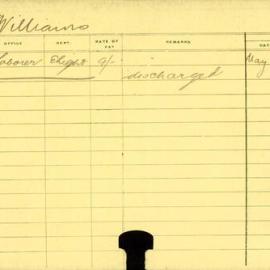 Williams
OFFICE DEPT. RATE OF PAY REMARKS DAT
Laborer 9/- discharged May